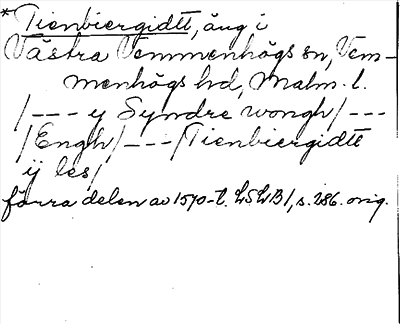 *Tienbiergidtt, äng i
Västra Vemmenhögs sn, Vem-
menhögs hd, Malm. l.
/--- y Syndre wongh/---
/Engh/---/Tienbiergidtt
ij les/
förra delen av 1570-t. LSLB 1, s. 286. orig.